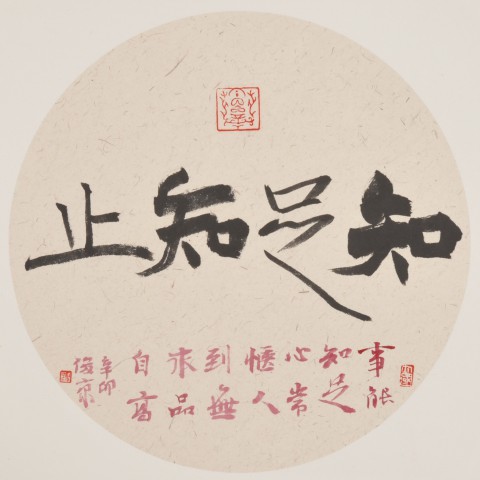 知足知止
事能
知足
心常
愜人
到無
求品
自高
辛卯